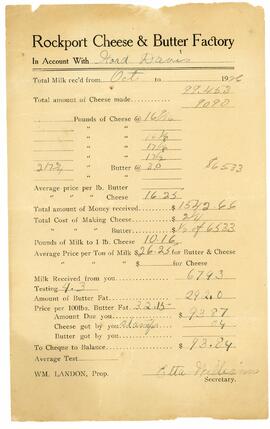 Rockport Cheese & Butter Factory
In Account With Ford Davis
Total Milk rec'd from Oct to 19
99.453
Total amount of Cheese made
9090
Pounds of Cheese @
" "
" "
" "
" Butter @ 30 86533
Average price per lb. Butter
" " " Cheese 16.25
Total Amount of Money received $1542.66
Total Cost of Making Cheese
" " " Butter
Pounds of Milk to 1 lb. Cheese 10.16
Average Price per Ton of Milk $26.25 for Butter & Cheese
" " " " $ for Cheese
Milk Received from you 6793
Testing 4.3
Amount of Butter Fat 292.0
Price per 100lbs. Butter Fat 32.15
Amount Due you $93.87
Cheese got by you
Butter got by you
To Cheque to Balance $93.84
Average Test
WM. LANDON, Prop. Etta
Secretary.